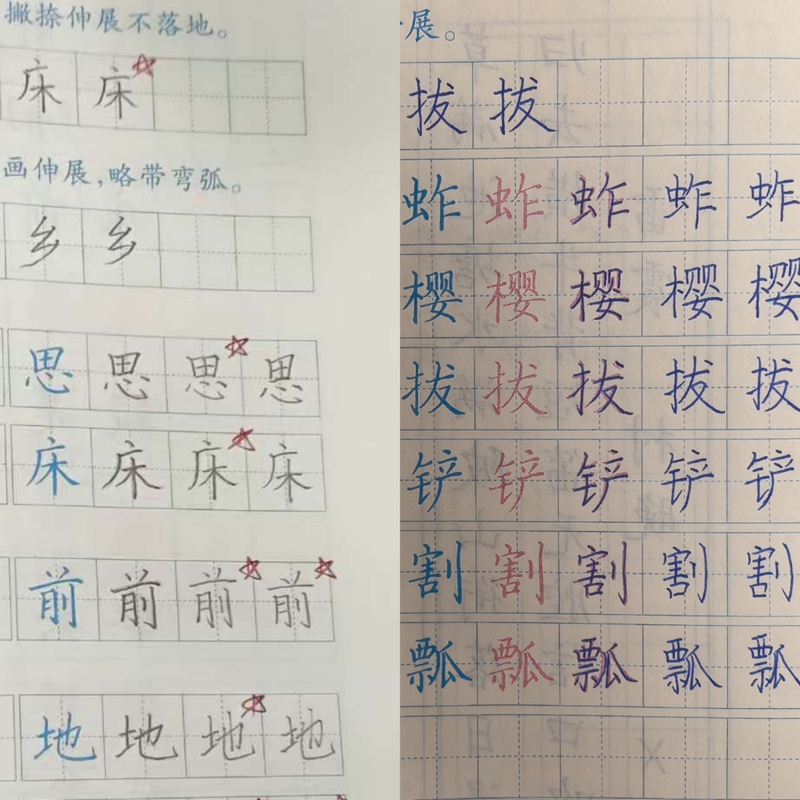 撇捺伸展不落地。
床床
画伸展,略带弯弧。
乡乡
思思思思
床床床床
前前前前
地地地地
展。
拔拔
蚱蚱蚱蚱蚱
樱樱樱樱樱
拔拔拔拔拔
铲铲铲铲铲
割割割割割
瓢瓢瓢瓢瓢